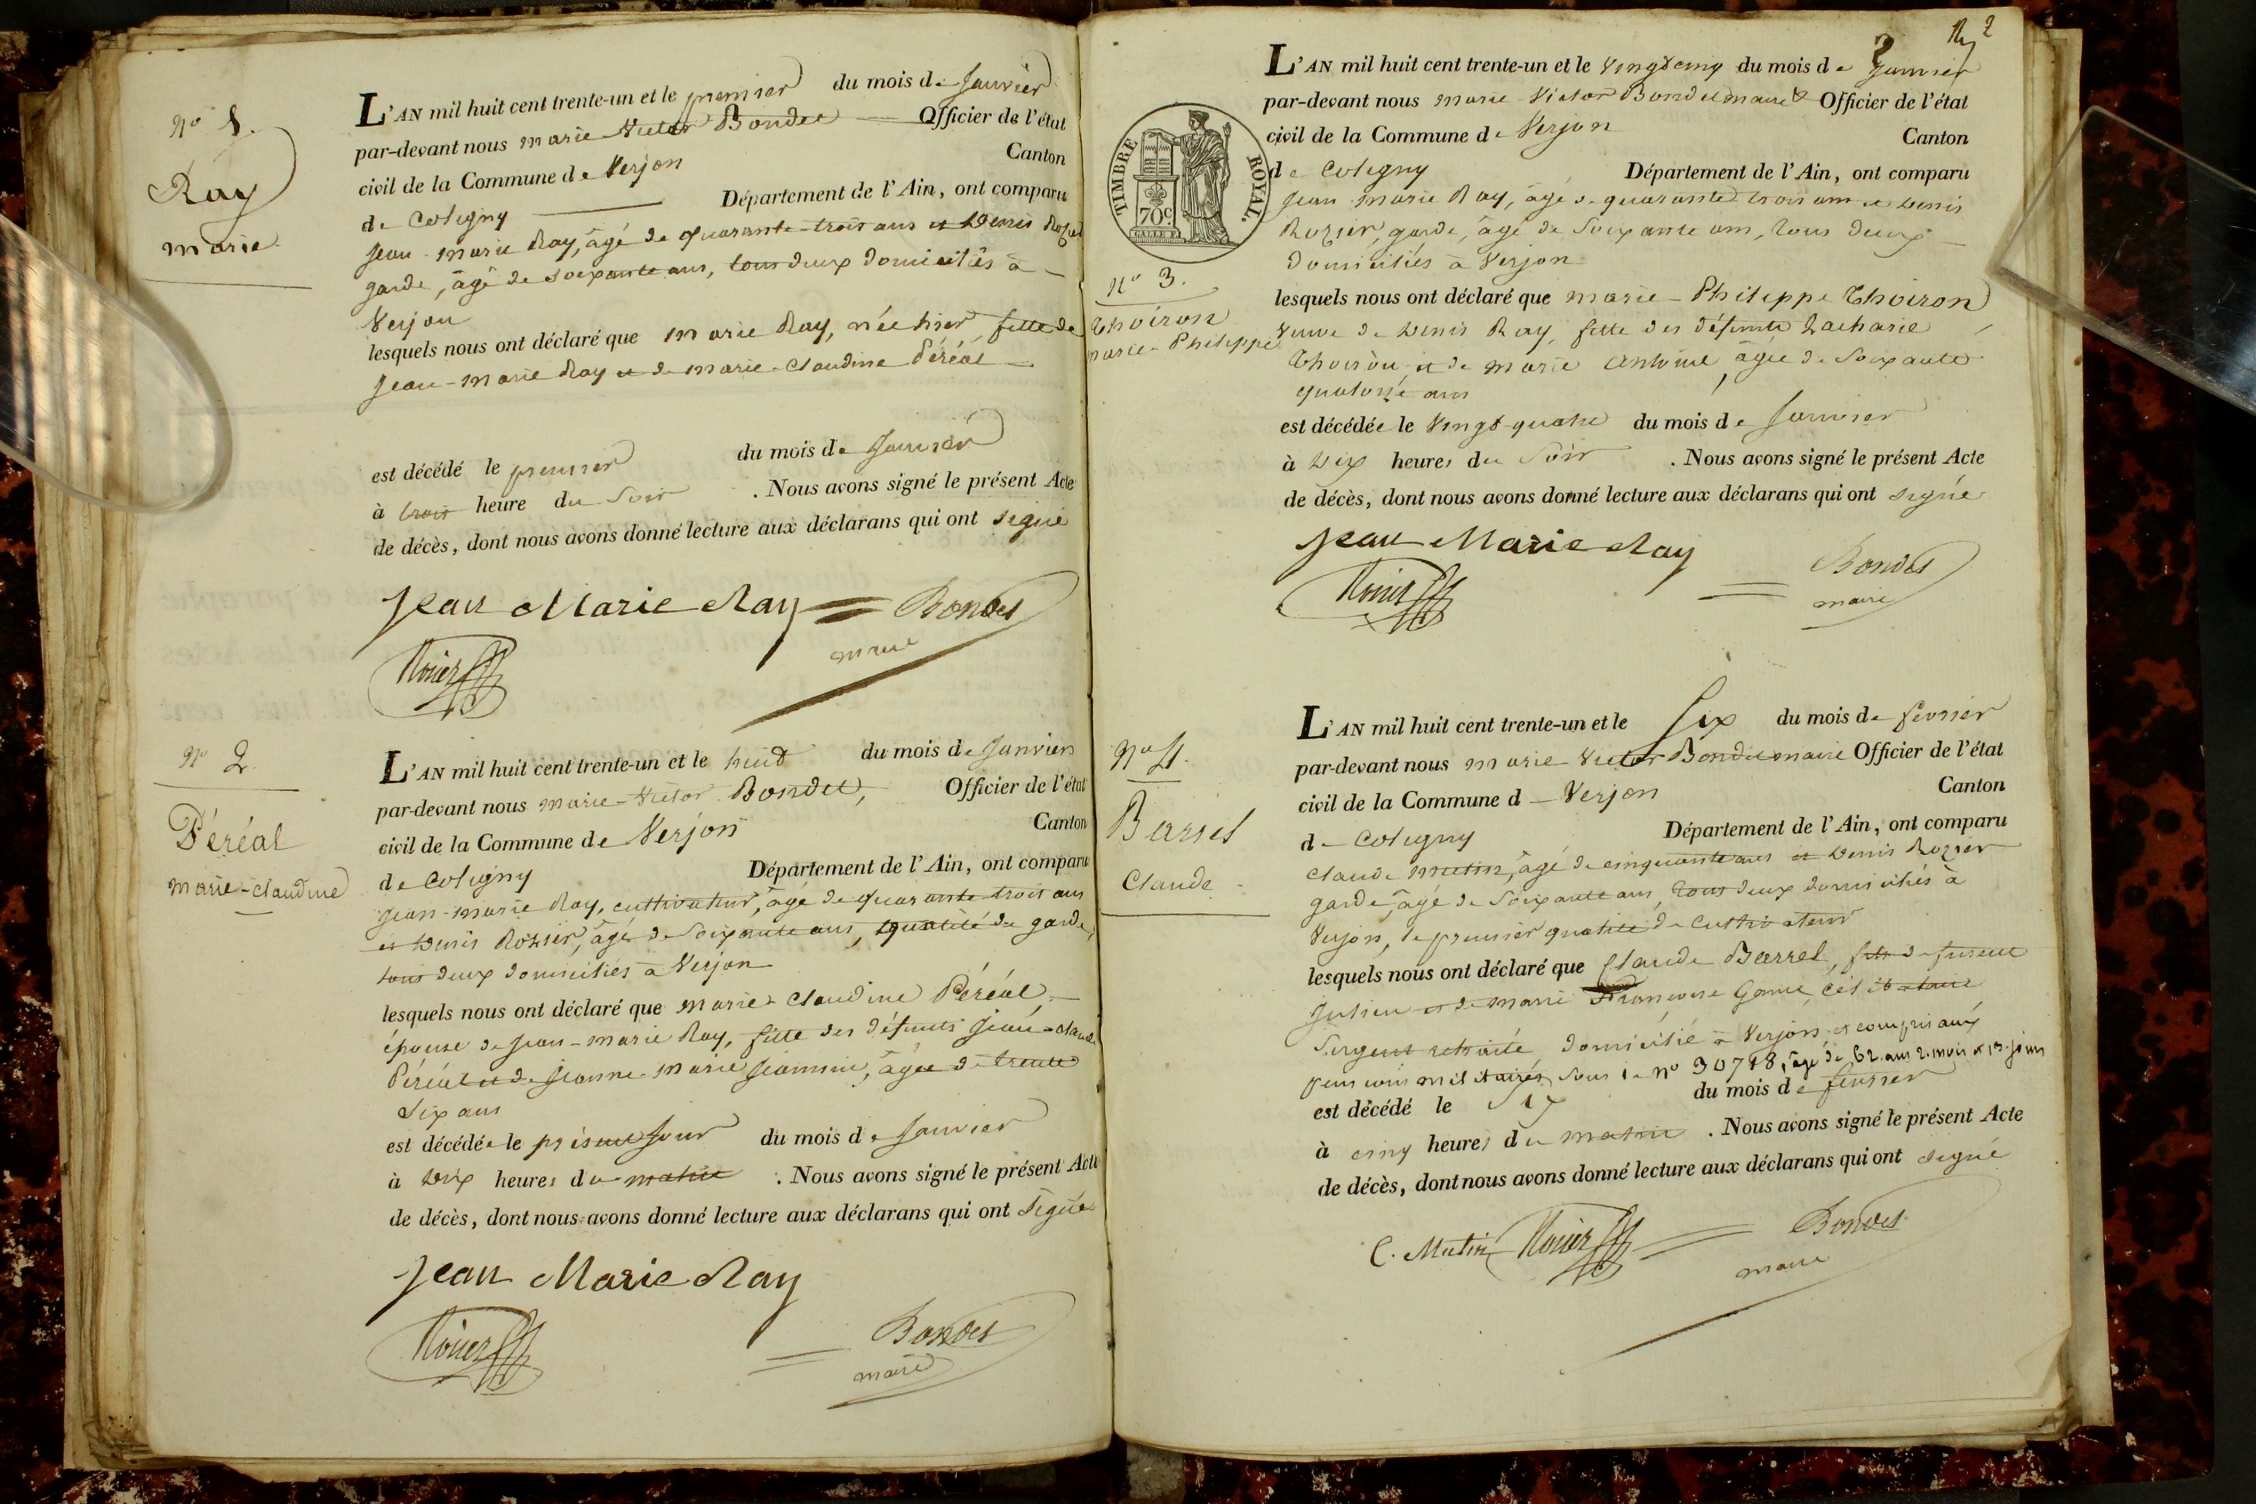 N° 1.
Ray
marie
L'AN mil huit cent trente-un et le premier du mois de Janvier
par-devant nous marie Victor Bondet Officier de l'état
civil de la Commune de Verjon Canton
de Coligny Département de l'Ain, ont comparu
Jean-marie Ray, âgé de quarante-trois ans et Denis Rozier
garde, âgé de soixante ans, tous deux domiciliés à
Verjon
lesquels nous ont déclaré que marie Ray, née hier fille de
Jean-marie Ray et de marie-claudine Péréal
est décédé le premier du mois de Janvier
à trois heure du Soir . Nous avons signé le présent Acte
de décès, dont nous avons donné lecture aux déclarans qui ont signé
Jean Marie Ray Bondet
maire
Rozier
N° 2
Péréal
marie-claudine
L'AN mil huit cent trente-un et le huit du mois de Janvier
par-devant nous marie-Victor Bondet, Officier de l'état
civil de la Commune de Verjon Canton
de Coligny Département de l'Ain, ont comparu
Jean-marie Ray, cultivateur, âgé de quarante trois ans
et Denis Rozier, âgé de Soixante ans, qualité de garde,
tous deux domiciliés à Verjon
lesquels nous ont déclaré que marie-claudine Péréal,
épouse de Jean-marie Ray, fille des défunts Jean-claude
Péréal et de Jeanne-marie Jeannin, âgée de trente
Six ans
est décédée le présent Jour du mois de Janvier
à Dix heures du matin . Nous avons signé le présent Acte
de décès, dont nous avons donné lecture aux déclarans qui ont Signé
Jean Marie Ray
Rozier Bondet
maire
2
TIMBRE ROYAL.
70c
N° 3.
Thoiron
marie-Philippe
L'AN mil huit cent trente-un et le vingt cinq du mois de Janvier
par-devant nous marie Victor Bondet maire & Officier de l'état
civil de la Commune de Verjon Canton
de Coligny Département de l'Ain, ont comparu
Jean marie Ray, âgé de quarante trois ans et Denis
Rozier, garde, âgé de Soixante ans, tous deux
domiciliés à Verjon
lesquels nous ont déclaré que marie-Philippe Thoiron
veuve de Denis Ray, fille des défunts Zacharie
Thoiron et de marie Antoine, âgée de Soixante
quatorze ans
est décédée le vingt-quatre du mois de Janvier
à Dix heures du Soir . Nous avons signé le présent Acte
de décès, dont nous avons donné lecture aux déclarans qui ont signé
Jean Marie Ray
Rozier Bondet
maire
N° 4.
Barrel
Claude
L'AN mil huit cent trente-un et le Six du mois de février
par-devant nous marie-Victor Bondet maire Officier de l'état
civil de la Commune d Verjon Canton
de Coligny Département de l'Ain, ont comparu
Claude Mutin, âgé de cinquante ans et Denis Rozier
garde, âgé de Soixante ans, tous deux domiciliés à
Verjon, le premier qualité de Cultivateur
lesquels nous ont déclaré que Claude Barrel, fils de furent
Julien et de marie Françoise célibataire
Sergent retraité, domicilié à Verjon, et compris aux
pensions militaires sous le n° 30718, âgé de 62 ans 2 mois et 13 jours
est décédé le Six du mois de février
à cinq heures du matin . Nous avons signé le présent Acte
de décès, dont nous avons donné lecture aux déclarans qui ont signé
C. Mutin Rozier Bondet
maire